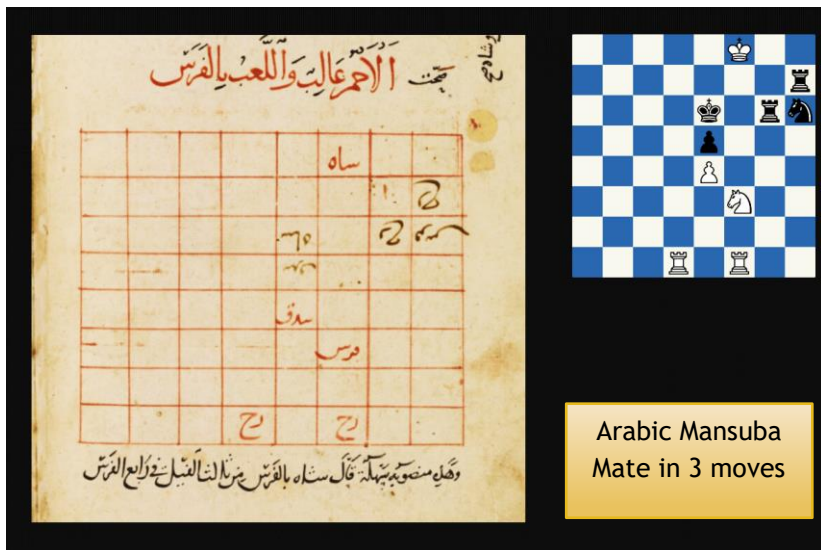 الأحمر غالب واللعب بالفرس
شاه
رخ
رخ
فرس
رخ رخ
وهذه منصوبة سهلة قال شاه بالفرس من ثالث الفيل في رابع الفرس
Arabic Mansuba
Mate in 3 moves